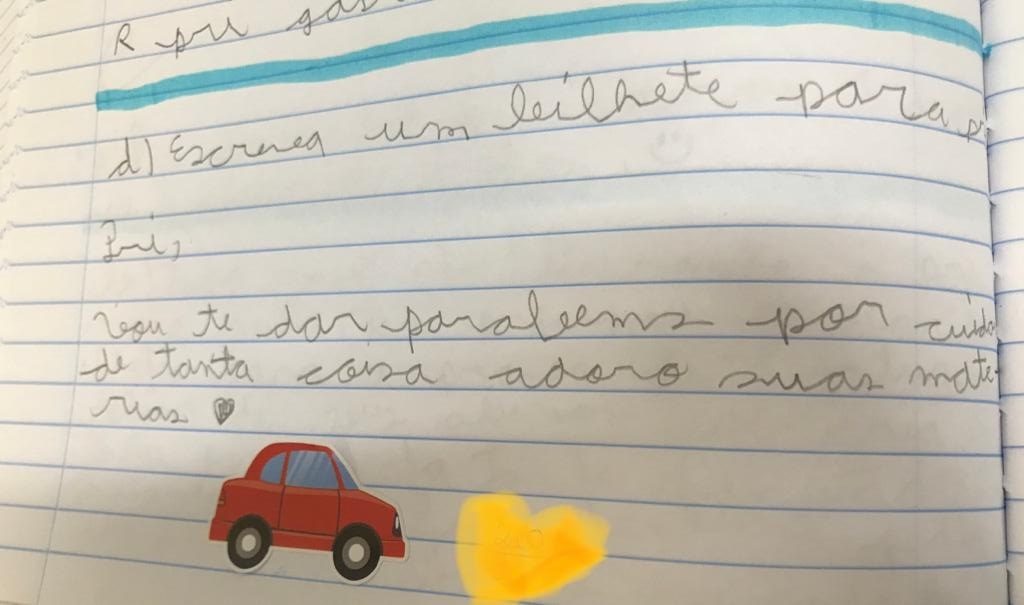 R pru
d) Escreva um bilhete para
vou te dar parabems por cuida
de tanta coisa adoro suas mate-
rias